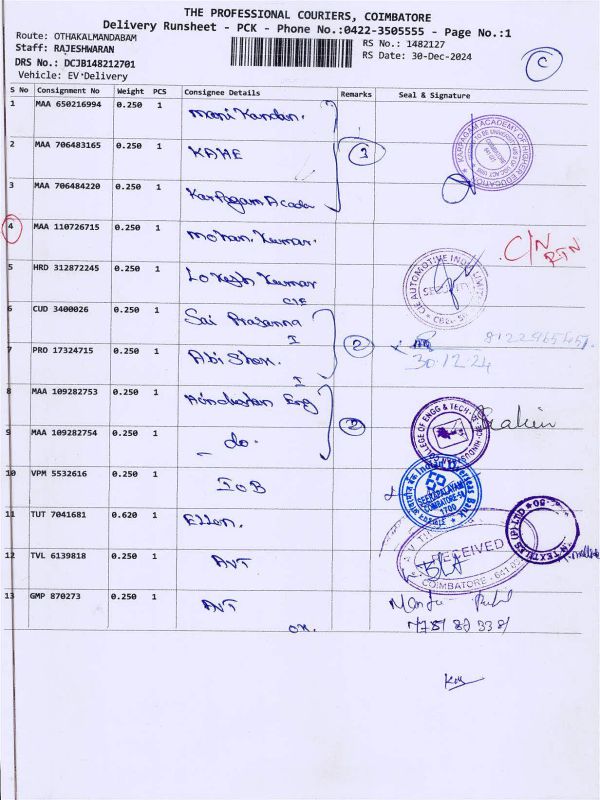 THE PROFESSIONAL COURIERS, COIMBATORE
Delivery Runsheet - PCK - Phone No.:0422-3505555 - Page No.:1
Route: OTHAKALMANDABAM
Staff: RAJESHWARAN
RS No.: 1482127
DRS No.: DCJB148212701
RS Date: 30-Dec-2024
Vehicle: EV Delivery
C
S No Consignment No Weight PCS Consignee Details Remarks Seal & Signature
1 MAA 650216994 0.250 1 Mani Kandan.
2 MAA 706483165 0.250 1 KAHE 3
KARPAGAM ACADEMY OF HIGHER EDUCATION
3 MAA 706484220 0.250 1 Karpagam Acade
4 MAA 110726715 0.250 1 Mohan Kumar. C/N RTN
5 HRD 312872245 0.250 1 Lokesh Kumar
CIE
CIE AUTOMOTIVE INDIA LIMITED
SECURITY
6 CUD 3400026 0.250 1 Sai Prasanna
I
2
7 PRO 17324715 0.250 1 Abi Shan.
I
30.12.24
8 MAA 109282753 0.250 1 Hindustan Eng
2
COLLEGE OF ENGG & TECH
9 MAA 109282754 0.250 1 - do.
10 VPM 5532616 0.250 1 IOB
Indian Overseas Bank
SEERAPALAYAM
COIMBATORE
1700
11 TUT 7041681 0.620 1 Ellen.
TEXTILES (P) LTD
12 TVL 6139818 0.250 1 AVT
RECEIVED
COIMBATORE - 641
13 GMP 870273 0.250 1 AVT